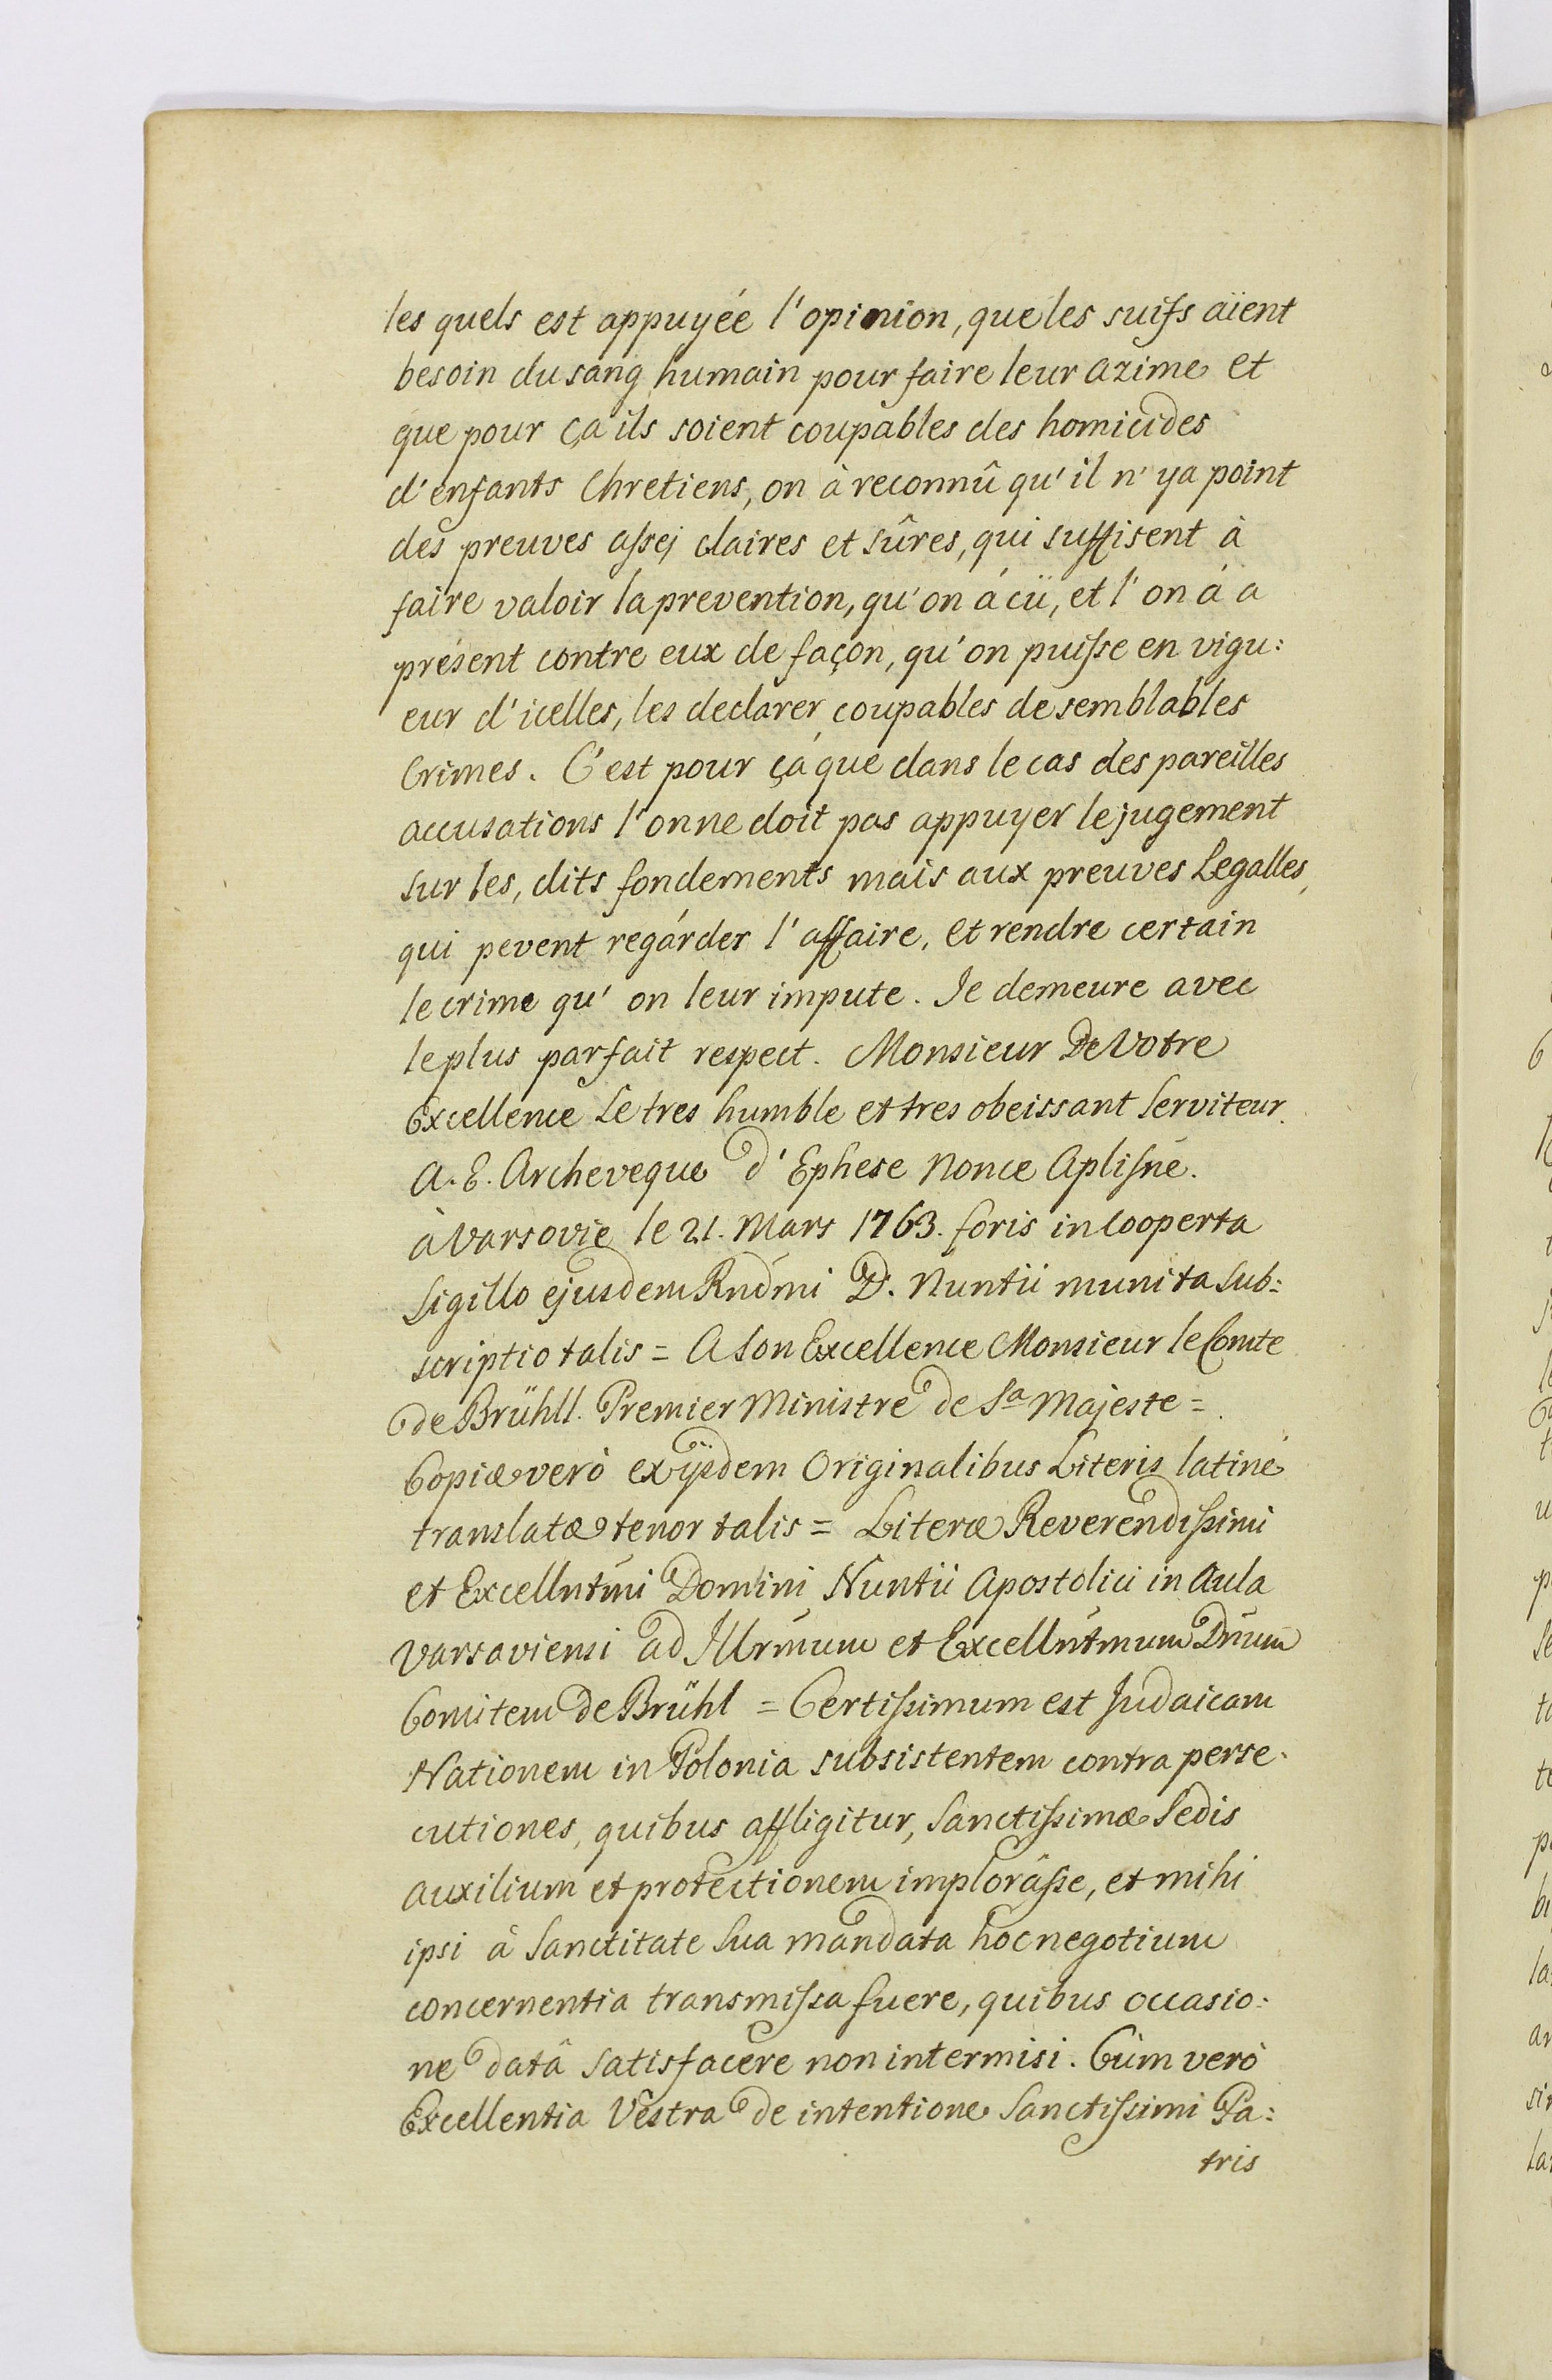 les quels est appuyée l'opinion, que les suifs aïent
besoin du sang humain pour faire leur azime et
que pour ça ils soient coupables des homicides
d'enfants Chretiens, on à reconnû qu'il n'ya point
des preuves assej claires et sûres, qui suffisent à
faire valoir la prevention, qu'on á cü, et l'on á a
présent contre eux de façon, qu'on puisse en vigu:
eur d'icelles, les declarer coupables de semblables
Crimes. C'est pour çá que dans le cas des pareilles
accusations l'on ne doit pas appuyer le jugement
sur les, dits fondements mais aux preuves Legalles,
qui pevent regárder l'affaire, et rendre certain
le crime qu'on leur impute. Je demeure avec
le plus parfait respect. Monsieur De Votre
Excellence Le tres humble et tres obeissant Serviteur.
A. E. Archeveque d'Ephese Nonce Aplisne.
à Varsovie le 21. Mars 1763. foris in Cooperta
Sigillo ejusdem Rndmi D. Nuntii munita Sub:
scriptio talis = A Son Excellence Monsieur le Comte
de Brühll. Premier Ministre de Sa Majeste =
Copiæ verò ex ijsdem Originalibus Literis latine
translatæ tenor talis = Literæ Reverendissimi
et Excellntmi Domini Nuntii Apostolici in Aula
Varsaviensi ad Illrmum et Excellntmum Dnum
Comitem de Brühl = Certissimum est Judaicam
Nationem in Polonia subsistentem contra perse-
cutiones, quibus affligitur, Sanctissimæ Sedis
auxilium et protectionem implorâsse, et mihi
ipsi à Sanctitate Sua mandata hoc negotium
concernentia transmissa fuere, quibus occasio:
ne datâ satisfacere non intermisi. Cùm verò
Excellentia Vestra de intentione Sanctissimi Pa:
tris